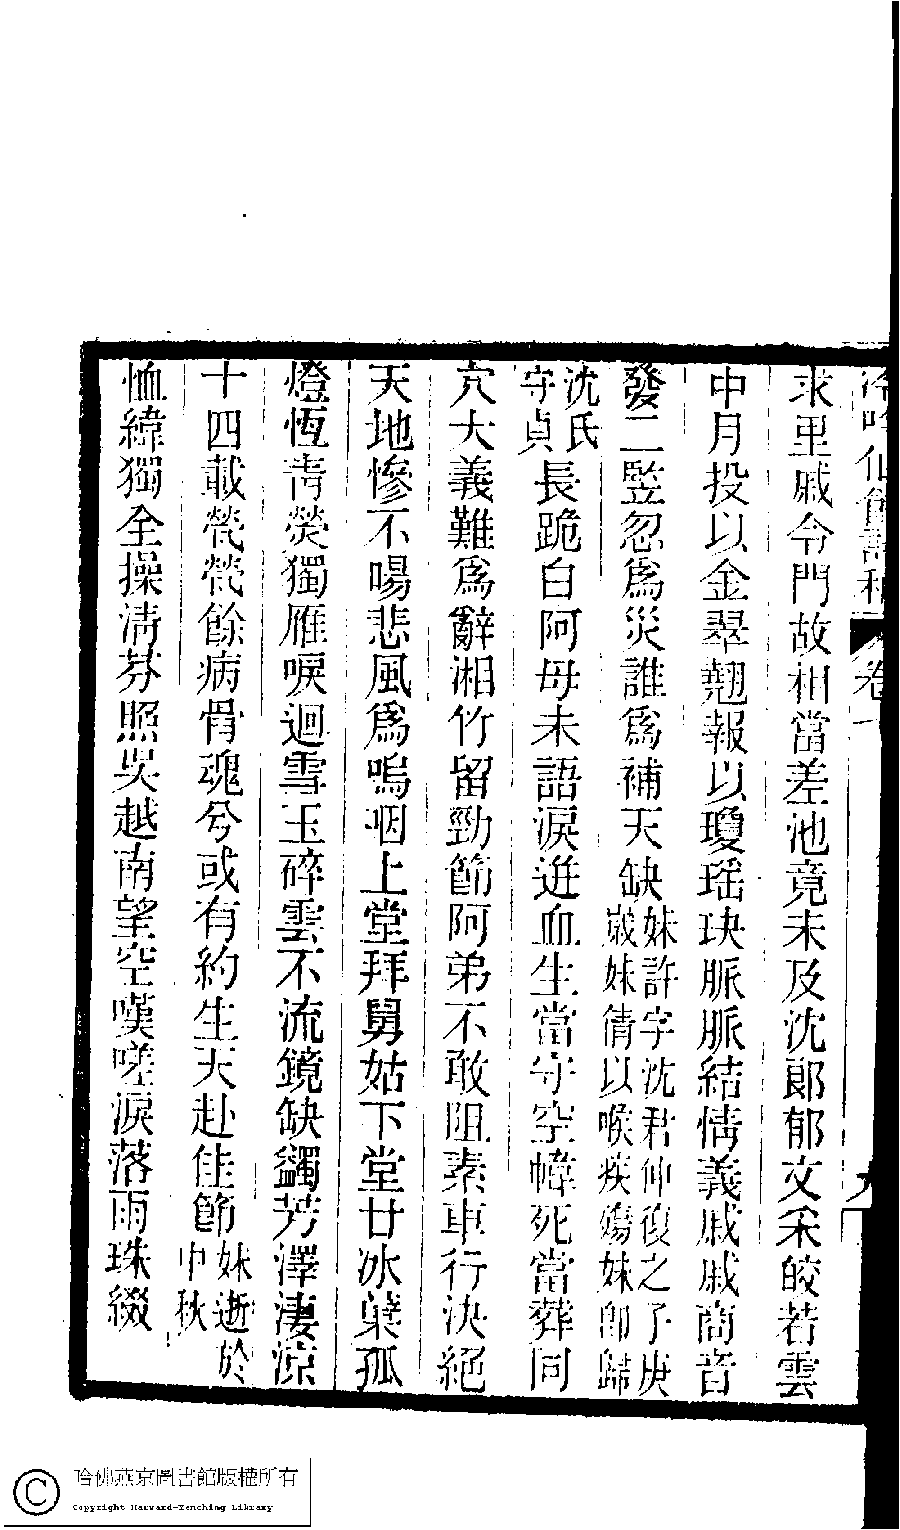 冷吟仙館詩稿 卷一 九
求里戚令門故相當差池竟未及沈郎郁文采皎若雲
中月投以金翠翹報以瓊瑤玦脈脈結情義戚戚商音
發二豎忽為災誰為補天缺妹許字沈君仲復之子庚
嵗妹倩以喉疾殤妹即歸
沈氏
守貞長跪白阿母未語淚迸血生當守空幃死當葬同
穴大義難為辭湘竹留勁節阿弟不敢阻素車行決絕
天地慘不暘悲風為嗚咽上堂拜舅姑下堂甘冰蘗孤
燈恆青熒獨雁唳迴雪玉碎雲不流鏡缺蠲芳澤淒涼
十四載煢煢餘病骨魂兮或有約生天赴佳節妹逝於
中秋
恤緯獨全操清芬照吳越南望空嘆嗟淚落雨珠綴
哈佛燕京圖書館版權所有
Copyright Harvard-Yenching Library